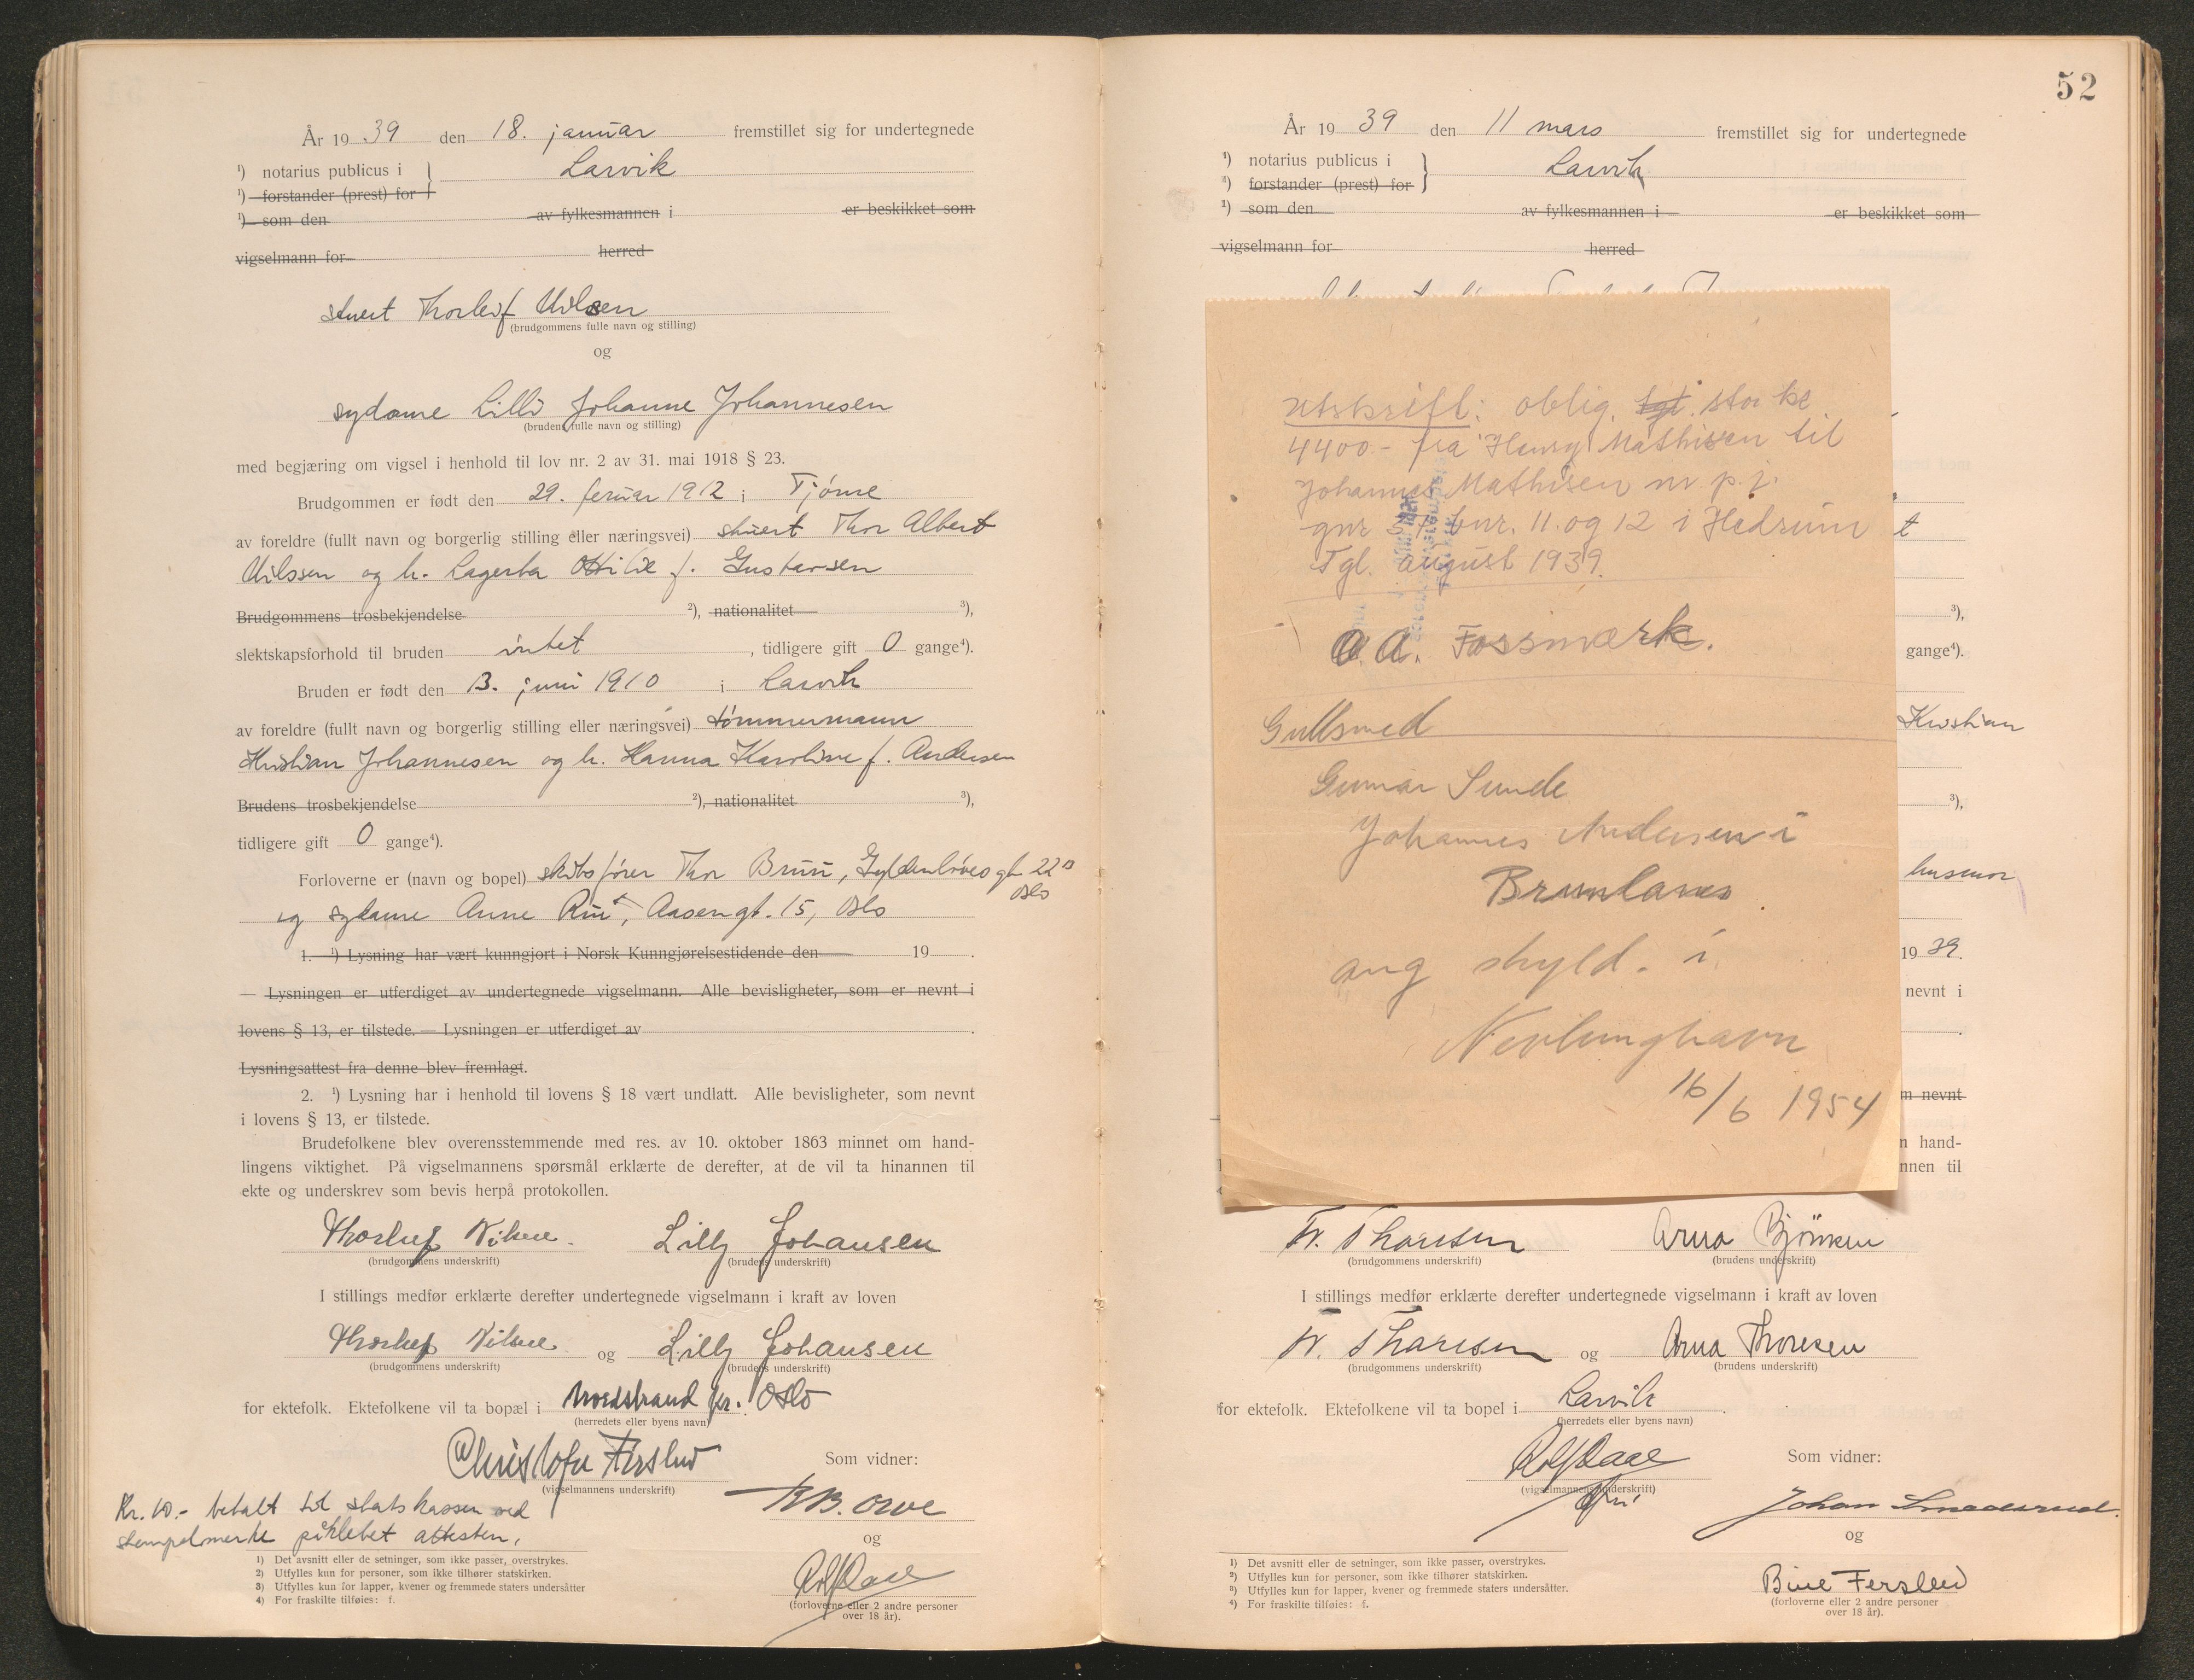 År 19 39 den 18. januar fremstillet sig for undertegnede
¹) notarius publicus i } Larvik
¹) forstander (prest) for
¹) som den av fylkesmannen i er beskikket som
vigselmann for herred
stuert Thorleif Nilsen
(brudgommens fulle navn og stilling)
og
sydame Lilli Johanne Johannesen
(brudens fulle navn og stilling)
med begjæring om vigsel i henhold til lov nr. 2 av 31. mai 1918 § 23.
Brudgommen er født den 29. feruar 1912 i Tjöme
av foreldre (fullt navn og borgerlig stilling eller næringsvei) stuert Thor Albert
Nilssen og h. Lagerta Ottilie f. Gustavsen
Brudgommens trosbekjendelse ²), nationalitet ³),
slektskapsforhold til bruden intet , tidligere gift 0 gange⁴).
Bruden er født den 13. juni 1910 i Larvik
av foreldre (fullt navn og borgerlig stilling eller næringsvei) tömmermann
Kristian Johannesen og h. Hanna Karoline f. Andersen
Brudens trosbekjendelse ²), nationalitet ³),
tidligere gift 0 gange⁴).
Forloverne er (navn og bopel) skibsfører Thor Bruu, Gyldenlövesgt. 22 Oslo
og sydame Anne Aasengt. 15, Oslo
1. ¹) Lysning har vært kunngjort i Norsk Kunngjørelsestidende den 19 .
— Lysningen er utferdiget av undertegnede vigselmann. Alle bevisligheter, som er nevnt i
lovens § 13, er tilstede. — Lysningen er utferdiget av .
Lysningsattest fra denne blev fremlagt.
2. ¹) Lysning har i henhold til lovens § 18 vært undlatt. Alle bevisligheter, som nevnt
i lovens § 13, er tilstede.
Brudefolkene blev overensstemmende med res. av 10. oktober 1863 minnet om hand-
lingens viktighet. På vigselmannens spørsmål erklærte de derefter, at de vil ta hinannen til
ekte og underskrev som bevis herpå protokollen.
Thorleif Nilsen. Lilly Johansen
(brudgommens underskrift) (brudens underskrift)
I stillings medfør erklærte derefter undertegnede vigselmann i kraft av loven
Thorleif Nilsen og Lilly Johansen
(brudgommens underskrift) (brudens underskrift)
for ektefolk. Ektefolkene vil ta bopæl i Nordstrand pr. Oslo
(herredets eller byens navn)
Christofer Ferslew Som vidner:
(vigselmannens underskrift)
Kr. 10.- betalt til statskassen ved
stempelmerke påklebet attesten.
og
Rolf Daae
(forloverne eller 2 andre personer
over 18 år).
1) Det avsnitt eller de setninger, som ikke passer, overstrykes.
2) Utfylles kun for personer, som ikke tilhører statskirken.
3) Utfylles kun for lapper, kvener og fremmede staters undersåtter
4) For fraskilte tilføies: f.
52
År 19 39 den 11 mars fremstillet sig for undertegnede
¹) notarius publicus i } Larvik
¹) forstander (prest) for
¹) som den av fylkesmannen i er beskikket som
vigselmann for herred
utskrift: oblig. tgl. stor kr
4400.- fra Henry Mathisen til
Johannes Mathisen m. p. i.
gnr 51 bnr. 11. og 12 i Hedrum
Tgl. august 1939.
O. A. Fossmærk.
Gullsmed
Gunnar Sunde
Johannes Andersen i
Brunlanes
ang skyld. i
Nevlunghavn
16/6 1954
t
³),
gange⁴).
Kristian
³),
husmor
19 39.
nevnt i
.
m nevnt
n hand-
nnen til
W. Thoresen Arna Bjönnes
(brudgommens underskrift) (brudens underskrift)
I stillings medfør erklærte derefter undertegnede vigselmann i kraft av loven
W. Thoresen og Arna Thoresen
(brudgommens underskrift) (brudens underskrift)
for ektefolk. Ektefolkene vil ta bopel i Larvik .
(herredets eller byens navn)
Rolf Daae Som vidner:
(vigselmannens underskrift)
Johan
og
Bine Ferslew
(forloverne eller 2 andre personer
over 18 år).
¹) Det avsnitt eller de setninger, som ikke passer, overstrykes.
²) Utfylles kun for personer, som ikke tilhører statskirken.
³) Utfylles kun for lapper, kvener og fremmede staters undersåtter.
⁴) For fraskilte tilføies: f.